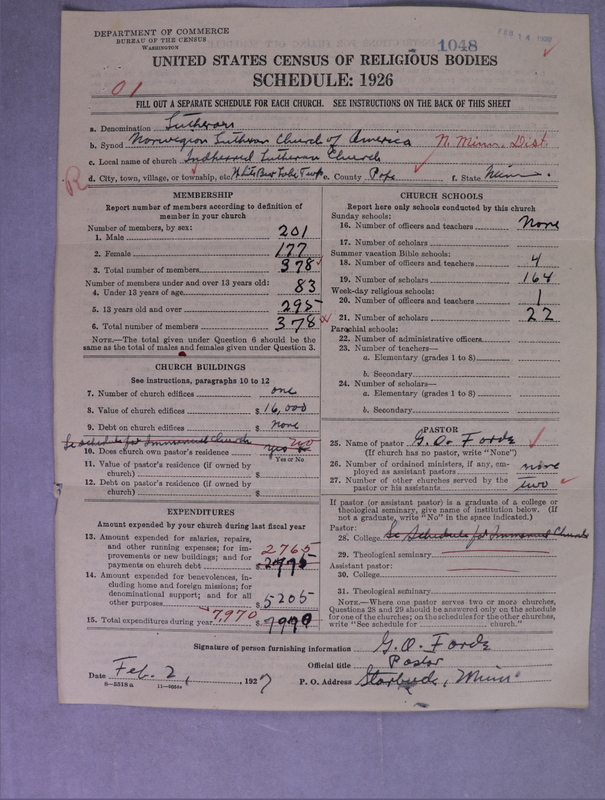 DEPARTMENT OF COMMERCE
BUREAU OF THE CENSUS
WASHINGTON
1048
UNITED STATES CENSUS OF RELIGIOUS BODIES
SCHEDULE: 1926
01
FILL OUT A SEPARATE SCHEDULE FOR EACH CHURCH. SEE INSTRUCTIONS ON THE BACK OF THIS SHEET
a. Denomination Lutheran
b. Synod Norwegian Lutheran Church of America N. Minn. Dist.
c. Local name of church Indherred Lutheran Church
R d. City, town, village, or township, etc. White Bear Lake Twp e. County Pope f. State Minn.
MEMBERSHIP
Report number of members according to definition of
member in your church
Number of members, by sex:
1. Male 201
2. Female 177
3. Total number of members 378
Number of members under and over 13 years old:
4. Under 13 years of age 83
5. 13 years old and over 295
6. Total number of members 378
NOTE.—The total given under Question 6 should be
the same as the total of males and females given under Question 3.
CHURCH BUILDINGS
See instructions, paragraphs 10 to 12
7. Number of church edifices one
8. Value of church edifices $ 16,000
9. Debt on church edifices $ none
See schedule for Immanuel Church
10. Does church own pastor's residence? yes no
Yes or No
11. Value of pastor's residence (if owned by
church) $
12. Debt on pastor's residence (if owned by
church) $
EXPENDITURES
Amount expended by your church during last fiscal year
13. Amount expended for salaries, repairs,
and other running expenses; for im-
provements or new buildings; and for
payments on church debt 2765
14. Amount expended for benevolences, in-
cluding home and foreign missions; for
denominational support; and for all
other purposes $ 5205
15. Total expenditures during year 7,970 $
CHURCH SCHOOLS
Report here only schools conducted by this church
Sunday schools:
16. Number of officers and teachers None
17. Number of scholars
Summer vacation Bible schools:
18. Number of officers and teachers 4
19. Number of scholars 164
Week-day religious schools:
20. Number of officers and teachers 1
21. Number of scholars 22
Parochial schools:
22. Number of administrative officers
23. Number of teachers—
a. Elementary (grades 1 to 8)
b. Secondary
24. Number of scholars—
a. Elementary (grades 1 to 8)
b. Secondary
PASTOR
25. Name of pastor G. O. Forde
(If church has no pastor, write "None")
26. Number of ordained ministers, if any, em-
ployed as assistant pastors none
27. Number of other churches served by the
pastor or his assistants two
If pastor (or assistant pastor) is a graduate of a college or
theological seminary, give name of institution below. (If
not a graduate, write "No" in the space indicated.)
Pastor:
28. College See Schedule for Immanuel Church
29. Theological seminary
Assistant pastor:
30. College
31. Theological seminary
NOTE.—Where one pastor serves two or more churches,
Questions 28 and 29 should be answered only on the schedule
for one of the churches; on the schedules for the other churches,
write "See schedule for church."
Signature of person furnishing information G. O. Forde
Official title Pastor
Date Feb. 2, 1927 P. O. Address Starbuck, Minn.
8—5518a